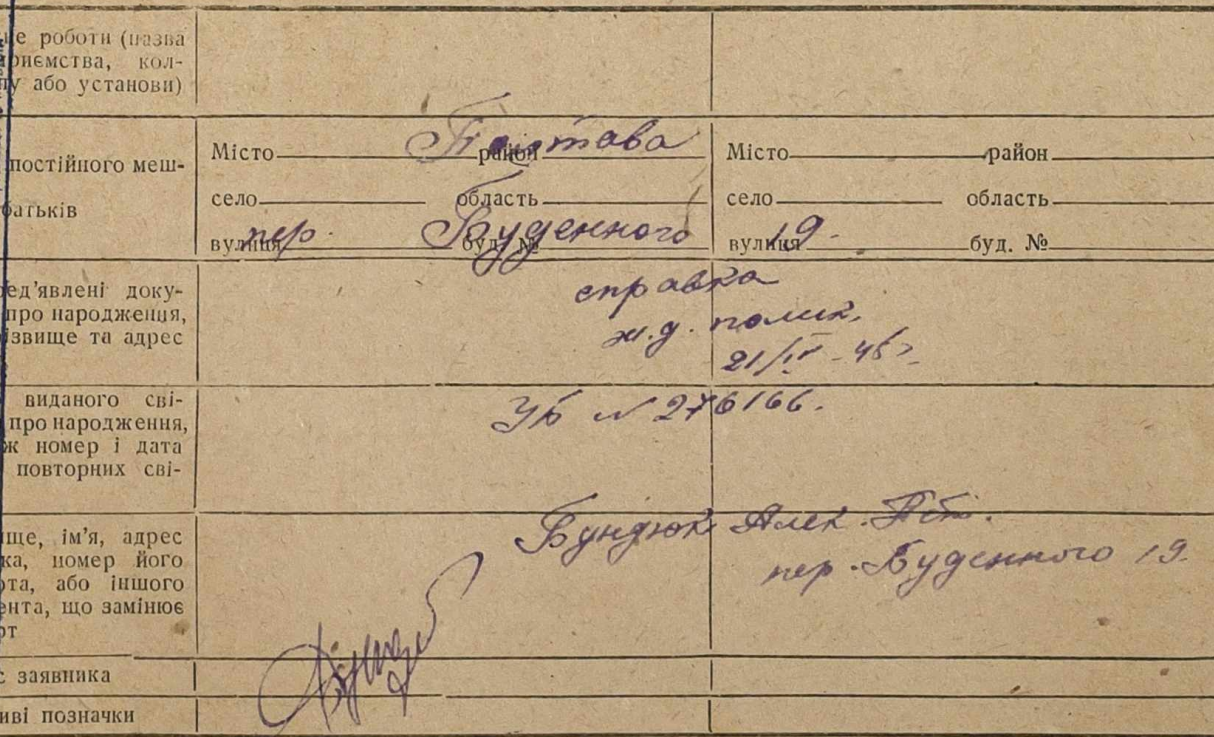 це роботи (назва
приємства, кол-
пу або установи)
постійного меш-
батьків
Місто Полтава район
село область
вулиця пер. Буденного буд. №
Місто район
село область
вулиця 19. буд. №
ред'явлені доку-
про народження,
ізвище та адрес
справка
ж.д. полик.
21/IV - 45 г.
виданого сві-
про народження,
ж номер і дата
повторних сві-
УБ № 276166.
ще, ім'я, адрес
ка, номер його
рта, або іншого
ента, що замінює
рт
Бундюк Алек. Пет.
пер. Буденного 19.
с заявника
иві позначки